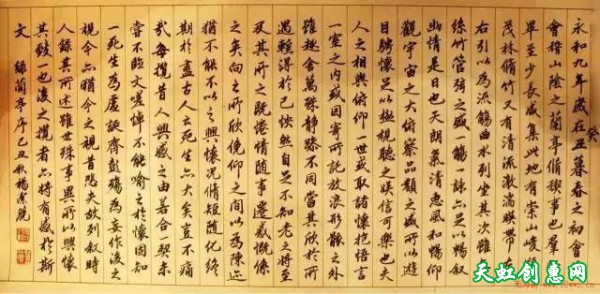 癸
永和九年歲在丑暮春之初會
會稽山陰之蘭亭脩禊事也羣
畢至少長咸集此地有崇山峻
茂林脩竹又有清流激湍暎帶左
右引以為流觴曲水列坐其次雖
絲竹管弦之盛觴一詠亦足以暢叙
幽情是日也天朗氣清惠風和暢仰
觀宇宙之大俯察品類之盛所以遊
目騁懷足以極視聽之娛信可樂也夫
人之相與俯仰一世或取諸懷抱悟言
一室之內或因寄所託放浪形骸之外
雖趣舍萬殊靜躁不同當其欣於所
遇輙得於己怏然自足不知老之將至
及其所之既惓情隨事遷感慨係
之矣向之所欣俛仰之間以為陳迹
猶不能不以之興懷況脩短隨化終
期於盡古人云死生亦大矣豈不痛
哉每攬昔人興感之由若合一契未
嘗不臨文嗟悼不能喻之於懷固知
一死生為虛誕齊彭殤為妄作後之
視今亦猶今之視昔悲夫故列叙時
人錄其所述雖世殊事異所以興懷
其致一也後之攬者亦將有感於斯
文 錄蘭亭序己丑秋楊
天虹创惠网